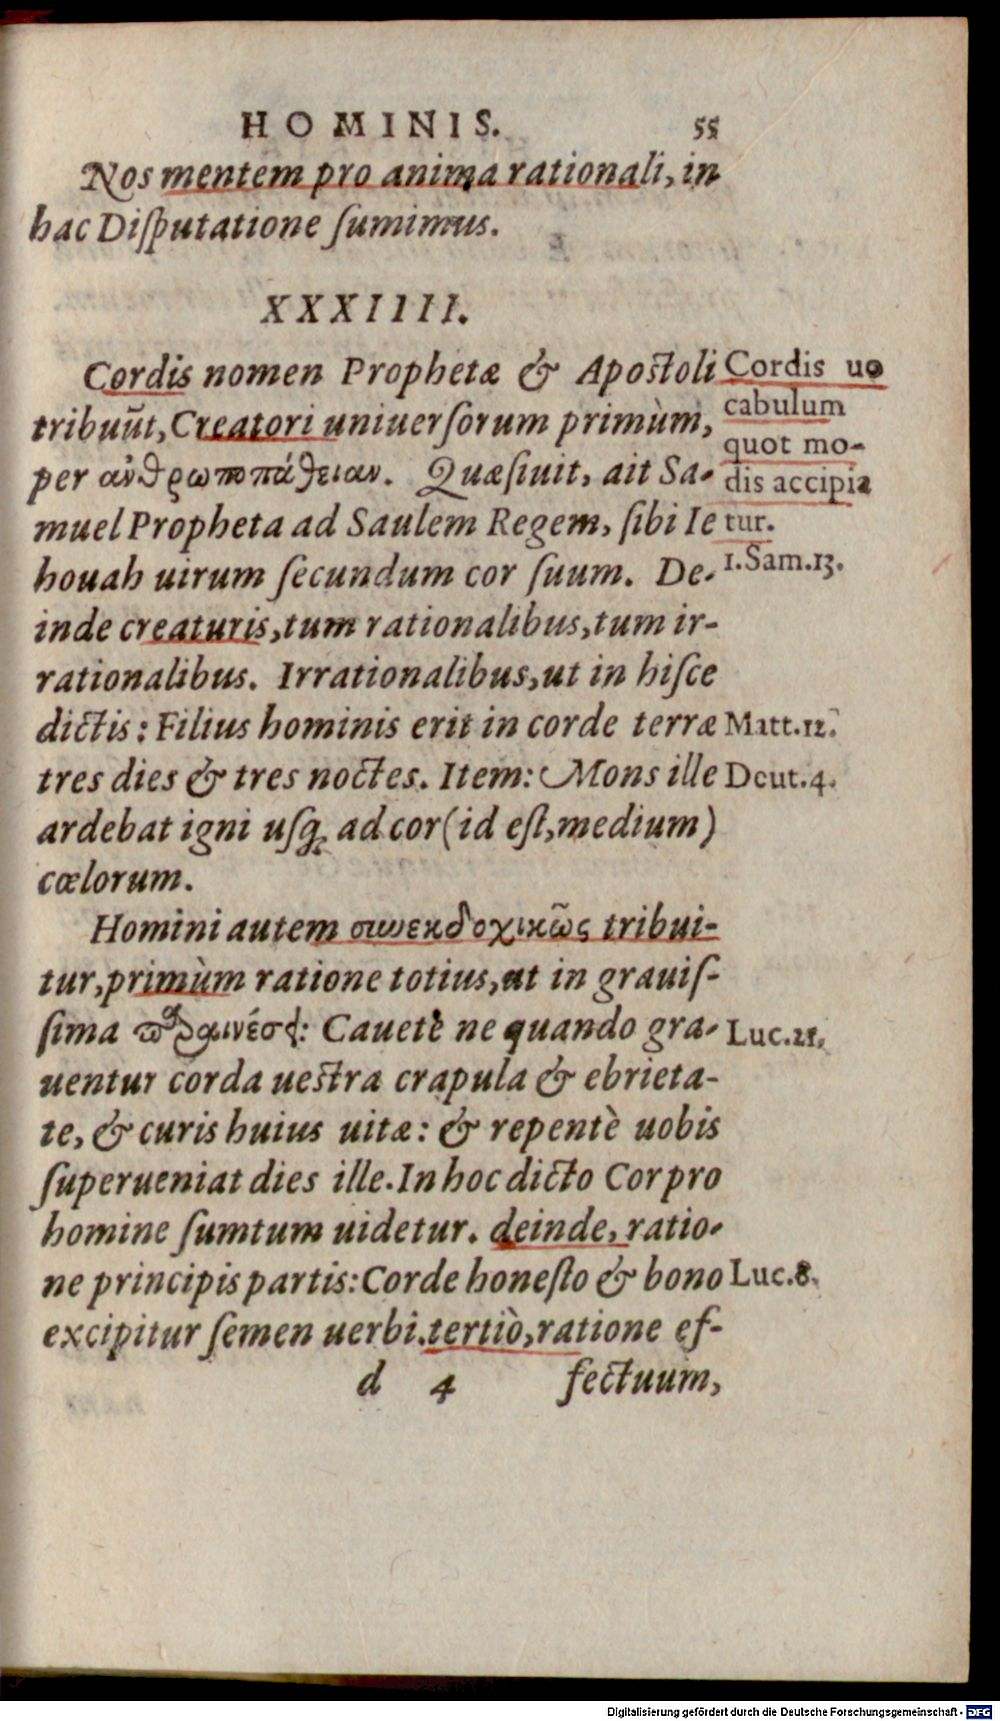 HOMINIS. 55
Nos mentem pro anima rationali, in
hac Disputatione sumimus.
XXXIIII.
Cordis nomen Prophetæ & Apostoli
tribuūt, Creatori uniuersorum primùm,
per ἀνθρωποπάθειαν. Quæsiuit, ait Sa-
muel Propheta ad Saulem Regem, sibi Ie
houah uirum secundum cor suum. De-
inde creaturis, tum rationalibus, tum ir-
rationalibus. Irrationalibus, ut in hisce
dictis: Filius hominis erit in corde terræ
tres dies & tres noctes. Item: Mons ille
ardebat igni usq; ad cor (id est, medium)
cœlorum.
Homini autem συνεκδοχικῶς tribui-
tur, primùm ratione totius, ut in grauis-
sima παραινέσει: Cauete ne quando gra-
uentur corda uestra crapula & ebrieta-
te, & curis huius uitæ: & repentè uobis
superueniat dies ille. In hoc dicto Cor pro
homine sumtum uidetur. deinde, ratio-
ne principis partis: Corde honesto & bono
excipitur semen uerbi. tertiò, ratione ef-
d 4 fectuum,
Cordis uo
cabulum
quot mo-
dis accipia
tur.
1. Sam. 13.
Matt. 12.
Deut. 4.
Luc. 21.
Luc. 8.
Digitalisierung gefördert durch die Deutsche Forschungsgemeinschaft - DFG